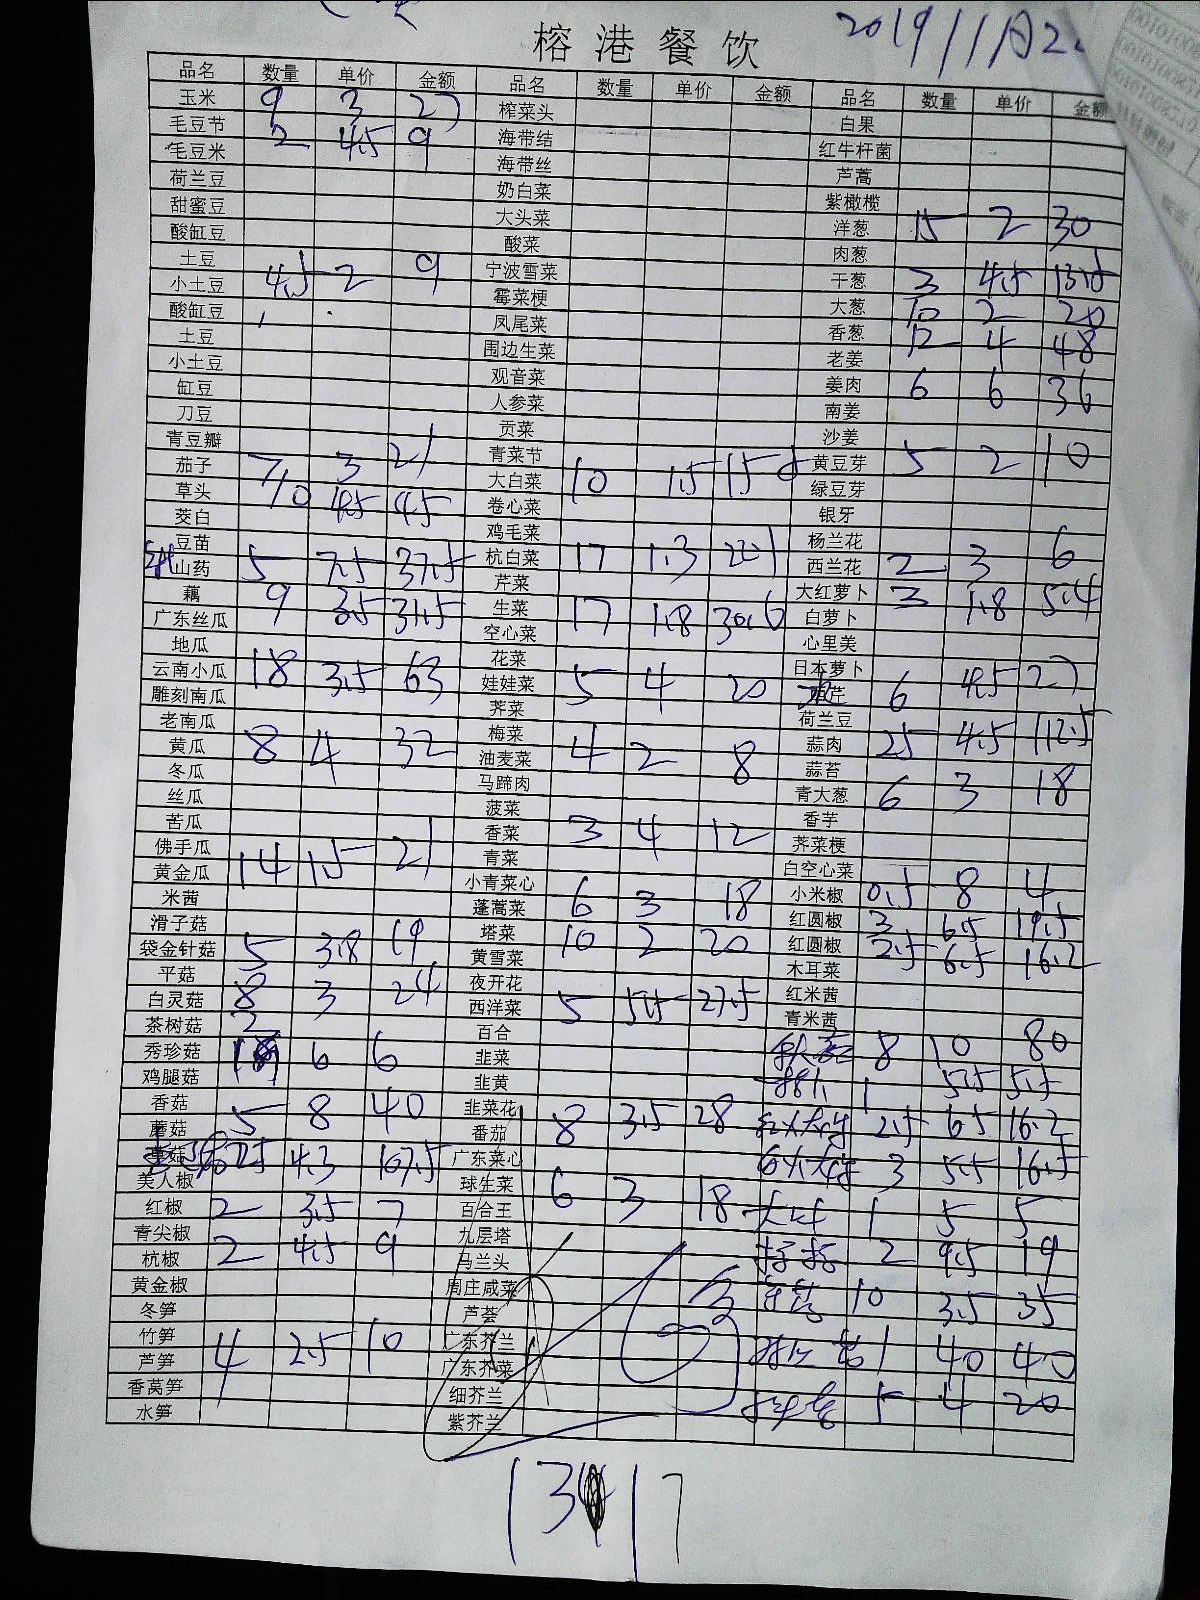 榕港餐饮
2019/11月2
品名 数量 单价 金额 品名 数量 单价 金额 品名 数量 单价 金额
玉米 9 3 27 榨菜头 白果
毛豆节 2 4.5 9 海带结 红牛杆菌
毛豆米 海带丝 芦蒿
荷兰豆 奶白菜 紫橄榄
甜蜜豆 大头菜 洋葱 15 2 30
酸缸豆 酸菜 肉葱
土豆 4.5 2 9 宁波雪菜 干葱 3 4.5 13.5
小土豆 霉菜梗 大葱 10 2 20
酸缸豆 凤尾菜 香葱 12 4 48
土豆 围边生菜 老姜
小土豆 观音菜 姜肉 6 6 36
缸豆 人参菜 南姜
刀豆 贡菜 沙姜
青豆瓣 青菜节 黄豆芽 5 2 10
茄子 7 3 21 大白菜 10 1.5 15 绿豆芽
草头 10 4.5 45 卷心菜 银牙
茭白 鸡毛菜 杨兰花
豆苗 杭白菜 17 1.3 22.1 西兰花 2 3 6
山药 5 7.5 37.5 芹菜 大红萝卜 3 1.8 5.4
藕 9 3.5 31.5 生菜 17 1.8 30.6 白萝卜
广东丝瓜 空心菜 心里美
地瓜 花菜 日本萝卜
云南小瓜 18 3.5 63 娃娃菜 5 4 20 芹 6 4.5 27
雕刻南瓜 荠菜 荷兰豆
老南瓜 梅菜 蒜肉 25 4.5 112.5
黄瓜 8 4 32 油麦菜 4 2 8 蒜苔
冬瓜 马蹄肉 青大葱 6 3 18
丝瓜 菠菜 香芋
苦瓜 香菜 3 4 12 荠菜梗
佛手瓜 青菜 白空心菜
黄金瓜 14 1.5 21 小青菜心 小米椒 0.5 8 4
米茜 蓬蒿菜 6 3 18 红圆椒 3 6.5 19.5
滑子菇 塔菜 10 2 20 红圆椒 2.5 6.5 16.2
袋金针菇 5 3.8 19 黄雪菜 木耳菜
平菇 夜开花 红米茜
白灵菇 8 3 24 西洋菜 5 5.5 27.5 青米茜
茶树菇 2 百合 8 10 80
秀珍菇 6 6 韭菜 1 5.5 5.5
鸡腿菇 韭黄
香菇 5 8 40 韭菜花 2.5 6.5 16.2
蘑菇 番茄 8 3.5 28 3 5.5 16.5
草菇 4.3 107.5 广东菜心
美人椒 球生菜 6 3 18 1 5 5
红椒 2 3.5 7 百合王
青尖椒 九层塔 2 9.5 19
杭椒 2 4.5 9 马兰头
黄金椒 周庄咸菜 10 3.5 35
冬笋 芦荟
竹笋 4 2.5 10 广东芥兰 1 40 40
芦笋 广东芥菜
香莴笋 细芥兰 5 4 20
水笋 紫芥兰